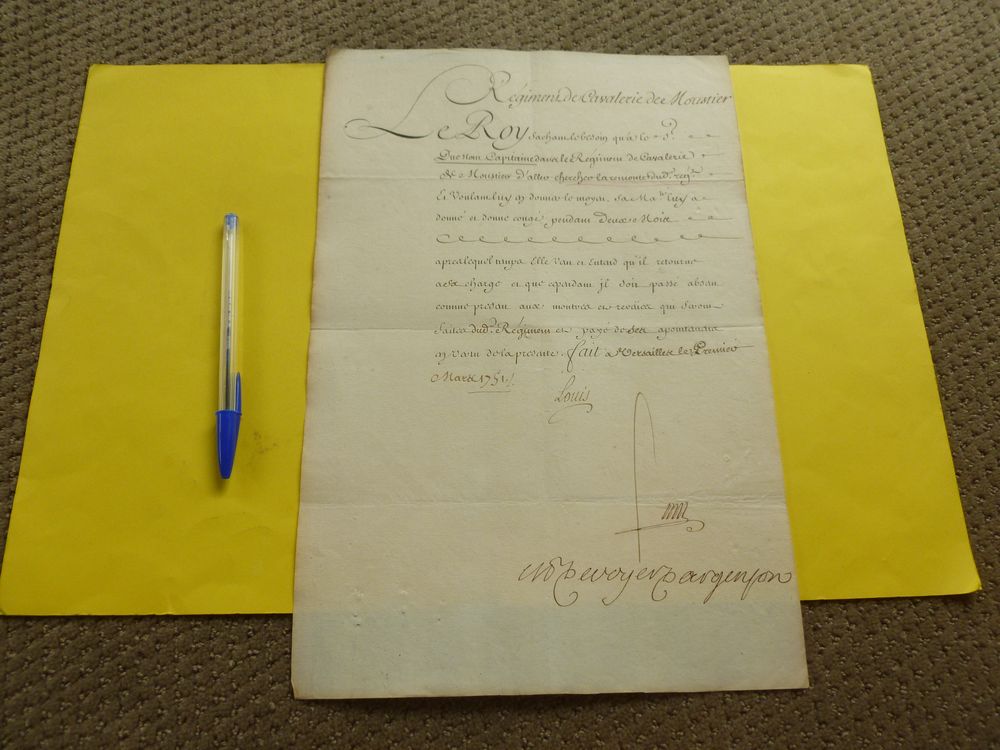 Regiment de Cavalerie de Moustier
Le Roy Sachant le besoin qu'a le S.r
Duc nom Capitaine dans le Regiment de Cavalerie
de Moustier d'aller chercher la remonte dud. reg.t
Et Voulant luy en donner le moyen, Sa Ma.té luy a
donné et donne congé pendant Deux Mois
apres lequel temps Elle Veut et Entend qu'il retourne
a sa charge et que cependant il soit passé absent
comme present aux montres et reveües qui seront
faites dud. Regiment et payé de ses apointemens
en vertu de la presente. fait a Versailles le Premier
Mars 1751./.
Louis
M de Voyer D'argenson